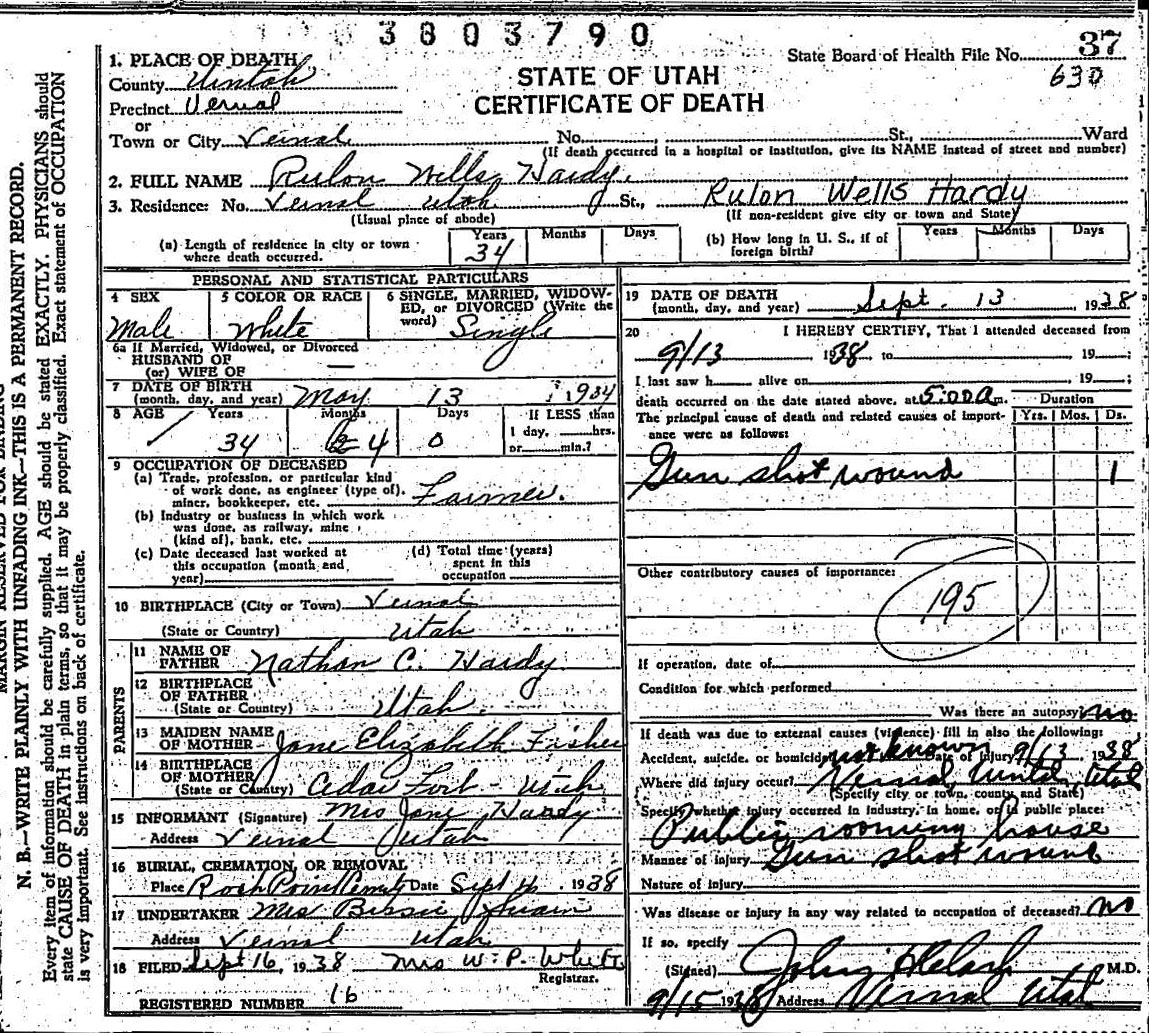 3803790
State Board of Health File No. 37
630
1. PLACE OF DEATH
County Uintah
Precinct Vernal
or
Town or City Vernal No. St., Ward
(If death occurred in a hospital or institution, give its NAME instead of street and number)
STATE OF UTAH
CERTIFICATE OF DEATH
2. FULL NAME Rulon Wells Hardy
3. Residence: No. Vernal Utah St., Rulon Wells Hardy
(Usual place of abode) (If non-resident give city or town and State)
(a) Length of residence in city or town where death occurred. Years 34 Months Days
(b) How long in U. S., if of foreign birth? Years Months Days
PERSONAL AND STATISTICAL PARTICULARS
4 SEX Male
5 COLOR OR RACE White
6 SINGLE, MARRIED, WIDOWED, or DIVORCED (Write the word) Single
6a If Married, Widowed, or Divorced
HUSBAND OF
(or) WIFE OF —
7 DATE OF BIRTH
(month, day, and year) May 13 1904
8 AGE Years 34 Months 4 Days 0 If LESS than
1 day, hrs.
or min.?
9 OCCUPATION OF DECEASED
(a) Trade, profession, or particular kind
of work done, as engineer (type of),
miner, bookkeeper, etc. Farmer.
(b) Industry or business in which work
was done, as railway, mine
(kind of), bank, etc.
(c) Date deceased last worked at
this occupation (month and
year)
(d) Total time (years)
spent in this
occupation
10 BIRTHPLACE (City or Town) Vernal
(State or Country) Utah
PARENTS
11 NAME OF
FATHER Nathan C. Hardy
12 BIRTHPLACE
OF FATHER
(State or Country) Utah.
13 MAIDEN NAME
OF MOTHER Jane Elizabeth Fisher
14 BIRTHPLACE
OF MOTHER
(State or Country) Cedar Fort - Utah
15 INFORMANT (Signature) Mrs Jane Hardy
Address Vernal Utah
16 BURIAL, CREMATION, OR REMOVAL
Place Date Sept 1938
17 UNDERTAKER Mrs Bessie
Address Vernal Utah
18 FILED Sept 16, 1938 Mrs W. P. White
Registrar.
REGISTERED NUMBER 16
19 DATE OF DEATH
(month, day, and year) Sept. 13 1938
20 I HEREBY CERTIFY, That I attended deceased from
9/13 1938 to 19 ;
I last saw h alive on 19 ;
death occurred on the date stated above, at 5:00 a m. Duration
The principal cause of death and related causes of importance were as follows: Yrs. Mos. Ds.
Gun shot wound 1
Other contributory causes of importance:
195
If operation, date of
Condition for which performed
Was there an autopsy no
If death was due to external causes (violence) fill in also the following:
Accident, suicide, or homicide not known Date of injury 9/13 1938
Where did injury occur? Vernal Uintah Utah
(Specify city or town, county and State)
Specify whether injury occurred in industry, in home, or in public place:
Public rooming house
Manner of injury Gun shot wound
Nature of injury
Was disease or injury in any way related to occupation of deceased? no
If so, specify
(Signed) M.D.
9/15 1938 Address Vernal Utah
MARGIN RESERVED FOR BINDING
N. B.—WRITE PLAINLY WITH UNFADING INK—THIS IS A PERMANENT RECORD.
Every item of information should be carefully supplied. AGE should be stated EXACTLY. PHYSICIANS should
state CAUSE OF DEATH in plain terms, so that it may be properly classified. Exact statement of OCCUPATION
is very important. See instructions on back of certificate.